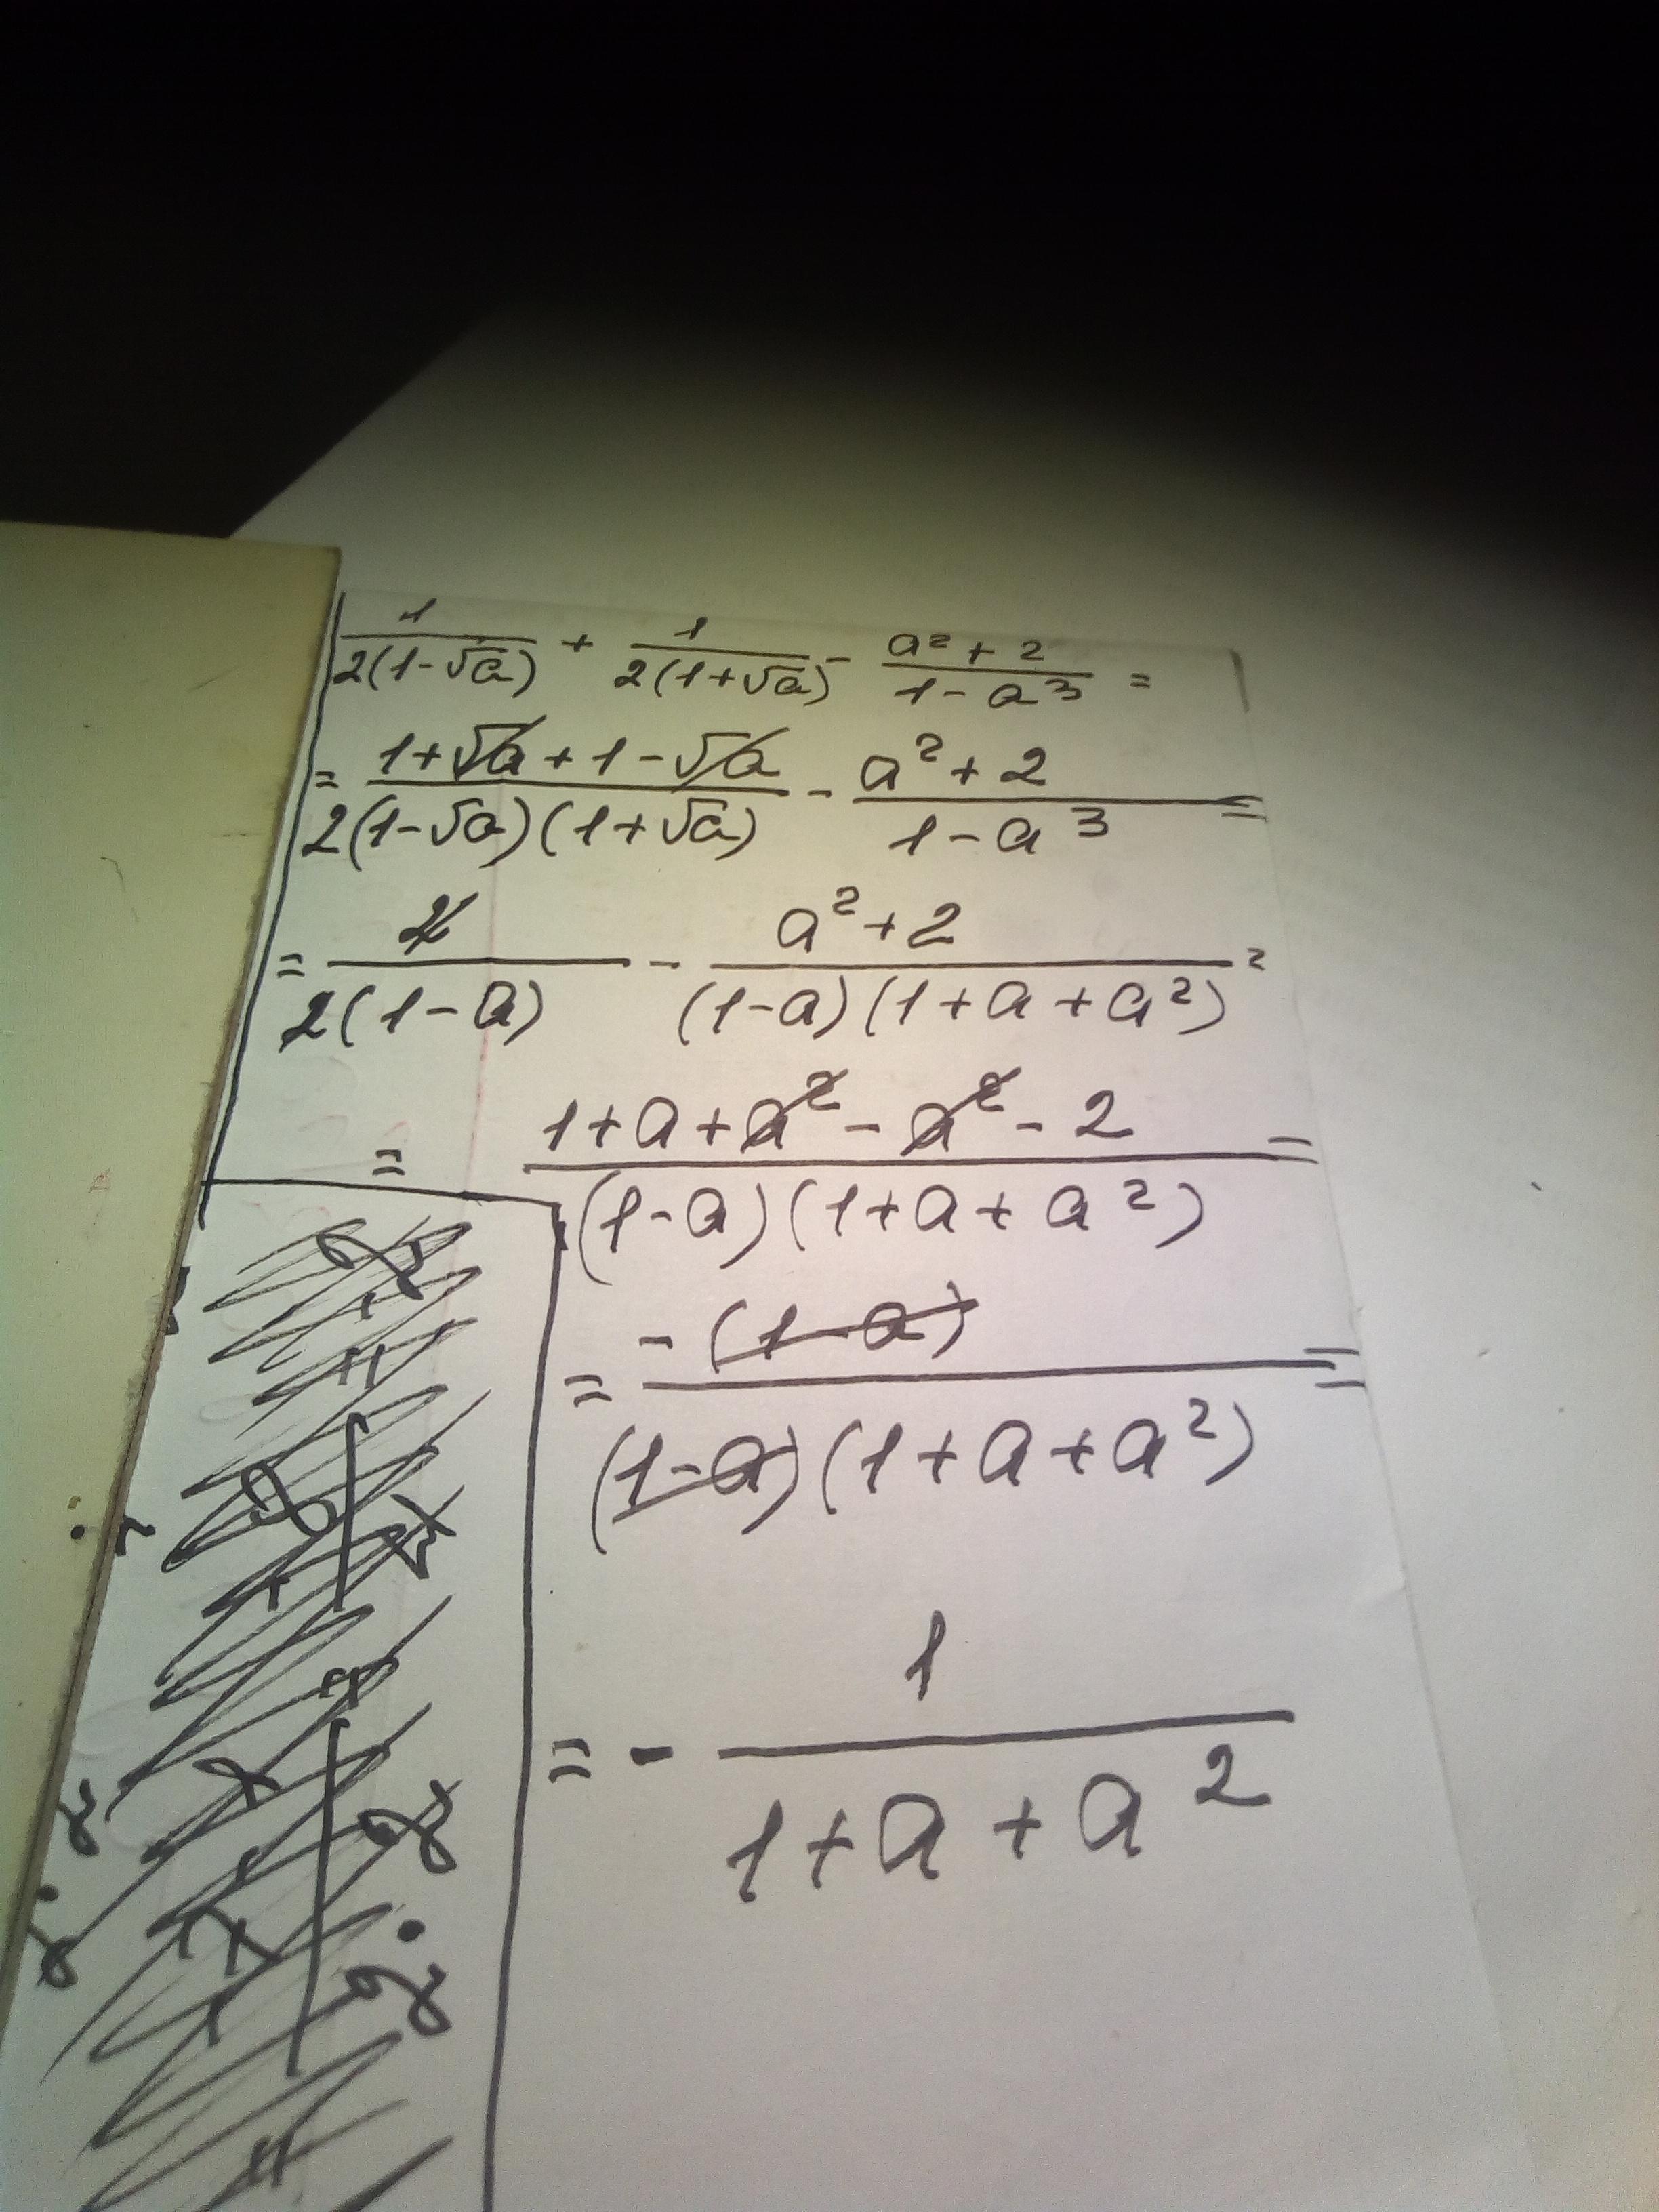 1/(2(1-√a)) + 1/(2(1+√a)) - (a²+2)/(1-a³) =
= (1+√a+1-√a)/(2(1-√a)(1+√a)) - (a²+2)/(1-a³) =
= 2/(2(1-a)) - (a²+2)/((1-a)(1+a+a²)) =
= (1+a+a²-a²-2)/((1-a)(1+a+a²)) =
= -(1-a)/((1-a)(1+a+a²)) =
= - 1/(1+a+a²)